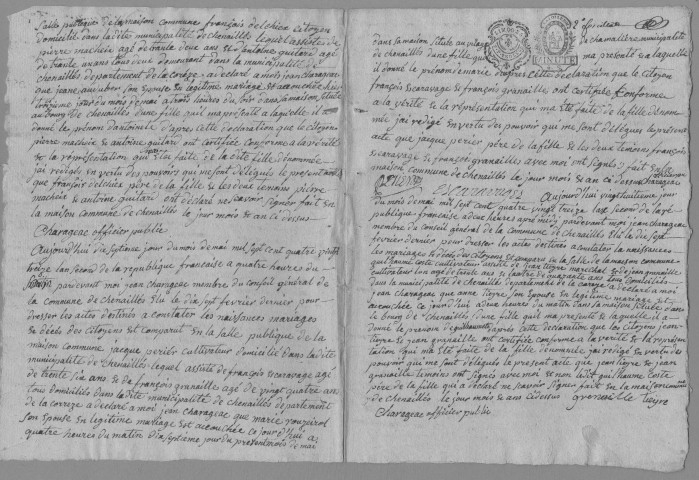 Salle publique de la maison commune françois delchiex citoyen
domicilié dans la dite municipalité de chenailles lequel assisté de
pierre macheix agé de trante deux ans et d'antoine guitard agé
de trante ans tous deux demeurant dans la municipalité de
chenailles département de la corrèze a declaré a moi jean charageac
que jeane son épouse en legitime mariage est acouchée
jour du mois de mai a trois heures du soir dans la maison située
au bourg de chenailles d'une fille qu'il ma presenté a laquelle il a
donné le prénom d'antoinete d'apres cette déclaration que les citoyens
pierre macheix et antoine guitard ont certifiée conforme a la vérité
et la représentation qui ma été faite de la dite fille dénommée
jai redigé en vertu des pouvoirs qui me sont délégués le present acte
que françois delchiex père de la fille et les deux témoins pierre
macheix et antoine guitard ont déclaré ne savoir signer fait en la
maison commune de chenailles le jour mois et an ci dessus
Charageac officier public
Aujourd'hui dix septieme jour du mois de mai mil sept cent quatre vingt
treize l'an second de la republique française a quatre heures du
soir pardevant moi jean charageac membre du conseil général de
la commune de chenailles élu le dix sept fevrier dernier pour
dresser les actes destinés a constater les naissances mariages
et décès des citoyens est comparut en la salle publique de la
maison commune jaque perier cultivateur domicilié dans la dite
municipalité de chenailles lequel assisté de françois escaravage agé
de trente six ans et de françois granaille agé de vingt quatre ans
tous domiciliés dans la dite municipalité de chenailles département
de la corrèze a déclaré a moi jean charageac que marie
son épouse en legitime mariage est acouchée ce jour d'hui a
quatre heures du matin dix septieme jour du present mois de mai
dans sa maison située au village de chamalliere municipalité
de chenailles d'une fille qu'il ma presenté et a laquelle
il donné le prénom de marie d'apres cette déclaration que les citoyens
françois escaravage et françois granaille ont certifiée conforme
a la vérité et la représentation qui ma été faite de la fille dénom
mée jai redigé en vertu des pouvoirs qui me sont délégués le present
acte que jaque perier père de la fille et les deux témoins françois
escaravage et françois granaille avec moi ont signés fait en la
maison commune de chenailles le jour mois et an ci dessus charageac
Perier Escaravage
Aujourd'hui vingt huitieme jour
du mois de mai mil sept cent quatre vingt treize l'an second de la ré
publique française a deux heures apres midy pardevant moi jean charageac
membre du conseil général de la commune de chenailles élu le dix sept
fevrier dernier pour dresser les actes destinés a constater les naissances
les mariages et décès des citoyens est comparu en la salle de la maison commune
guilhaume coste cultivateur assisté de jean teyre marechal et de jean granaille
cultivateur
dans la municipalité de chenailles département de la corrèze a déclaré a moi
jean charageac que anne teyre son épouse en legitime mariage est
acouchée ce jour d'hui a deux heures du matin dans sa maison située dans
le bourg de chenailles d'une fille qu'il ma presenté et a laquelle il a
donné le prenom de guilhaumete d'après cette déclaration que les citoyens jean
teyre et jean granaille ont certifiée conforme a la verité et la représen
tation qui ma été faite de la fille dénommée jai redigé en vertu des
pouvoirs qui me sont délégués le present acte que jean teyre et jean
granaille temoins ont signés avec moi et non le dit guilhaume coste
père de la fille qui a déclaré ne savoir signer fait en la maison commune
de chenailles le jour mois et an ci dessus grenaille teyre
Charageac officier public